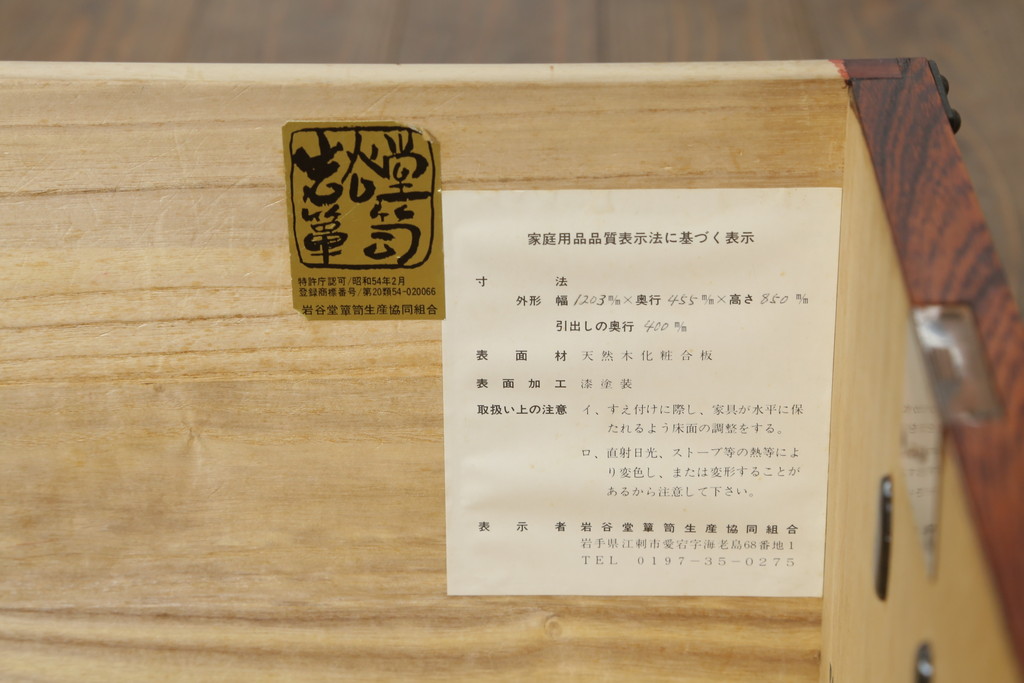 岩谷堂箪笥
特許庁認可/昭和54年2月
登録商標番号/第20類54-020066
岩谷堂簞笥生産協同組合
家庭用品品質表示法に基づく表示
寸法
外形 幅 1203 m/m × 奥行 455 m/m × 高さ 850 m/m
引出しの奥行 400 m/m
表面材 天然木化粧合板
表面加工 漆塗装
取扱い上の注意 イ、すえ付けに際し、家具が水平に保
たれるよう床面の調整をする。
ロ、直射日光、ストーブ等の熱等によ
り変色し、または変形することが
あるから注意して下さい。
表示者 岩谷堂簞笥生産協同組合
岩手県江刺市愛宕字海老島68番地1
TEL 0197-35-0275